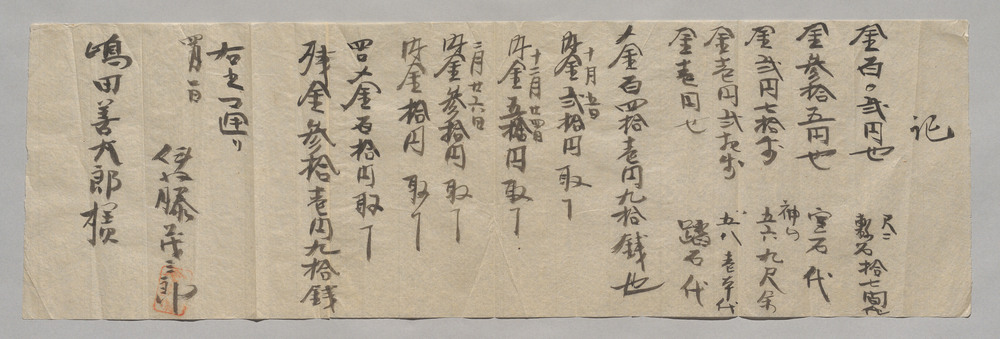 記
金百〇弐円也 尺二 敷石拾七間也
金参拾五円也 宝石代
金弐円七拾銭 神山 五六九尺余
金壱円弐拾銭 五八壱本代
金壱円也 踏石代
〆金百四拾壱円九拾銭也
十月五日
内金弐拾円取了
十二月廿四日
内金五拾円取了
二月廿六日
内金参拾円取了
内金拾円取了
四口〆金百拾円取了
残金参拾壱円九拾銭
右之通り
四月一日
伊藤茂三郎
嶋田善太郎様